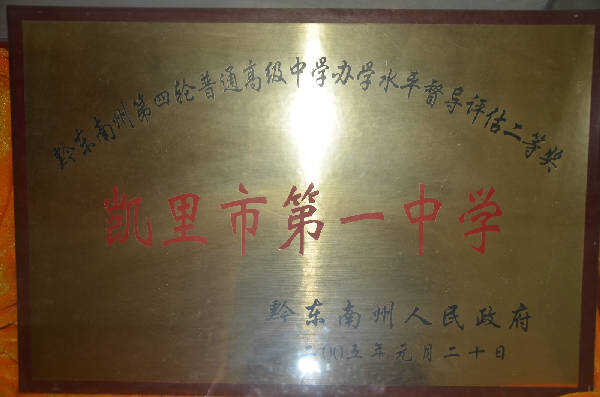 黔东南州第四轮普通高级中学办学水平督导评估二等奖
凯里市第一中学
黔东南州人民政府
二00五年元月二十日